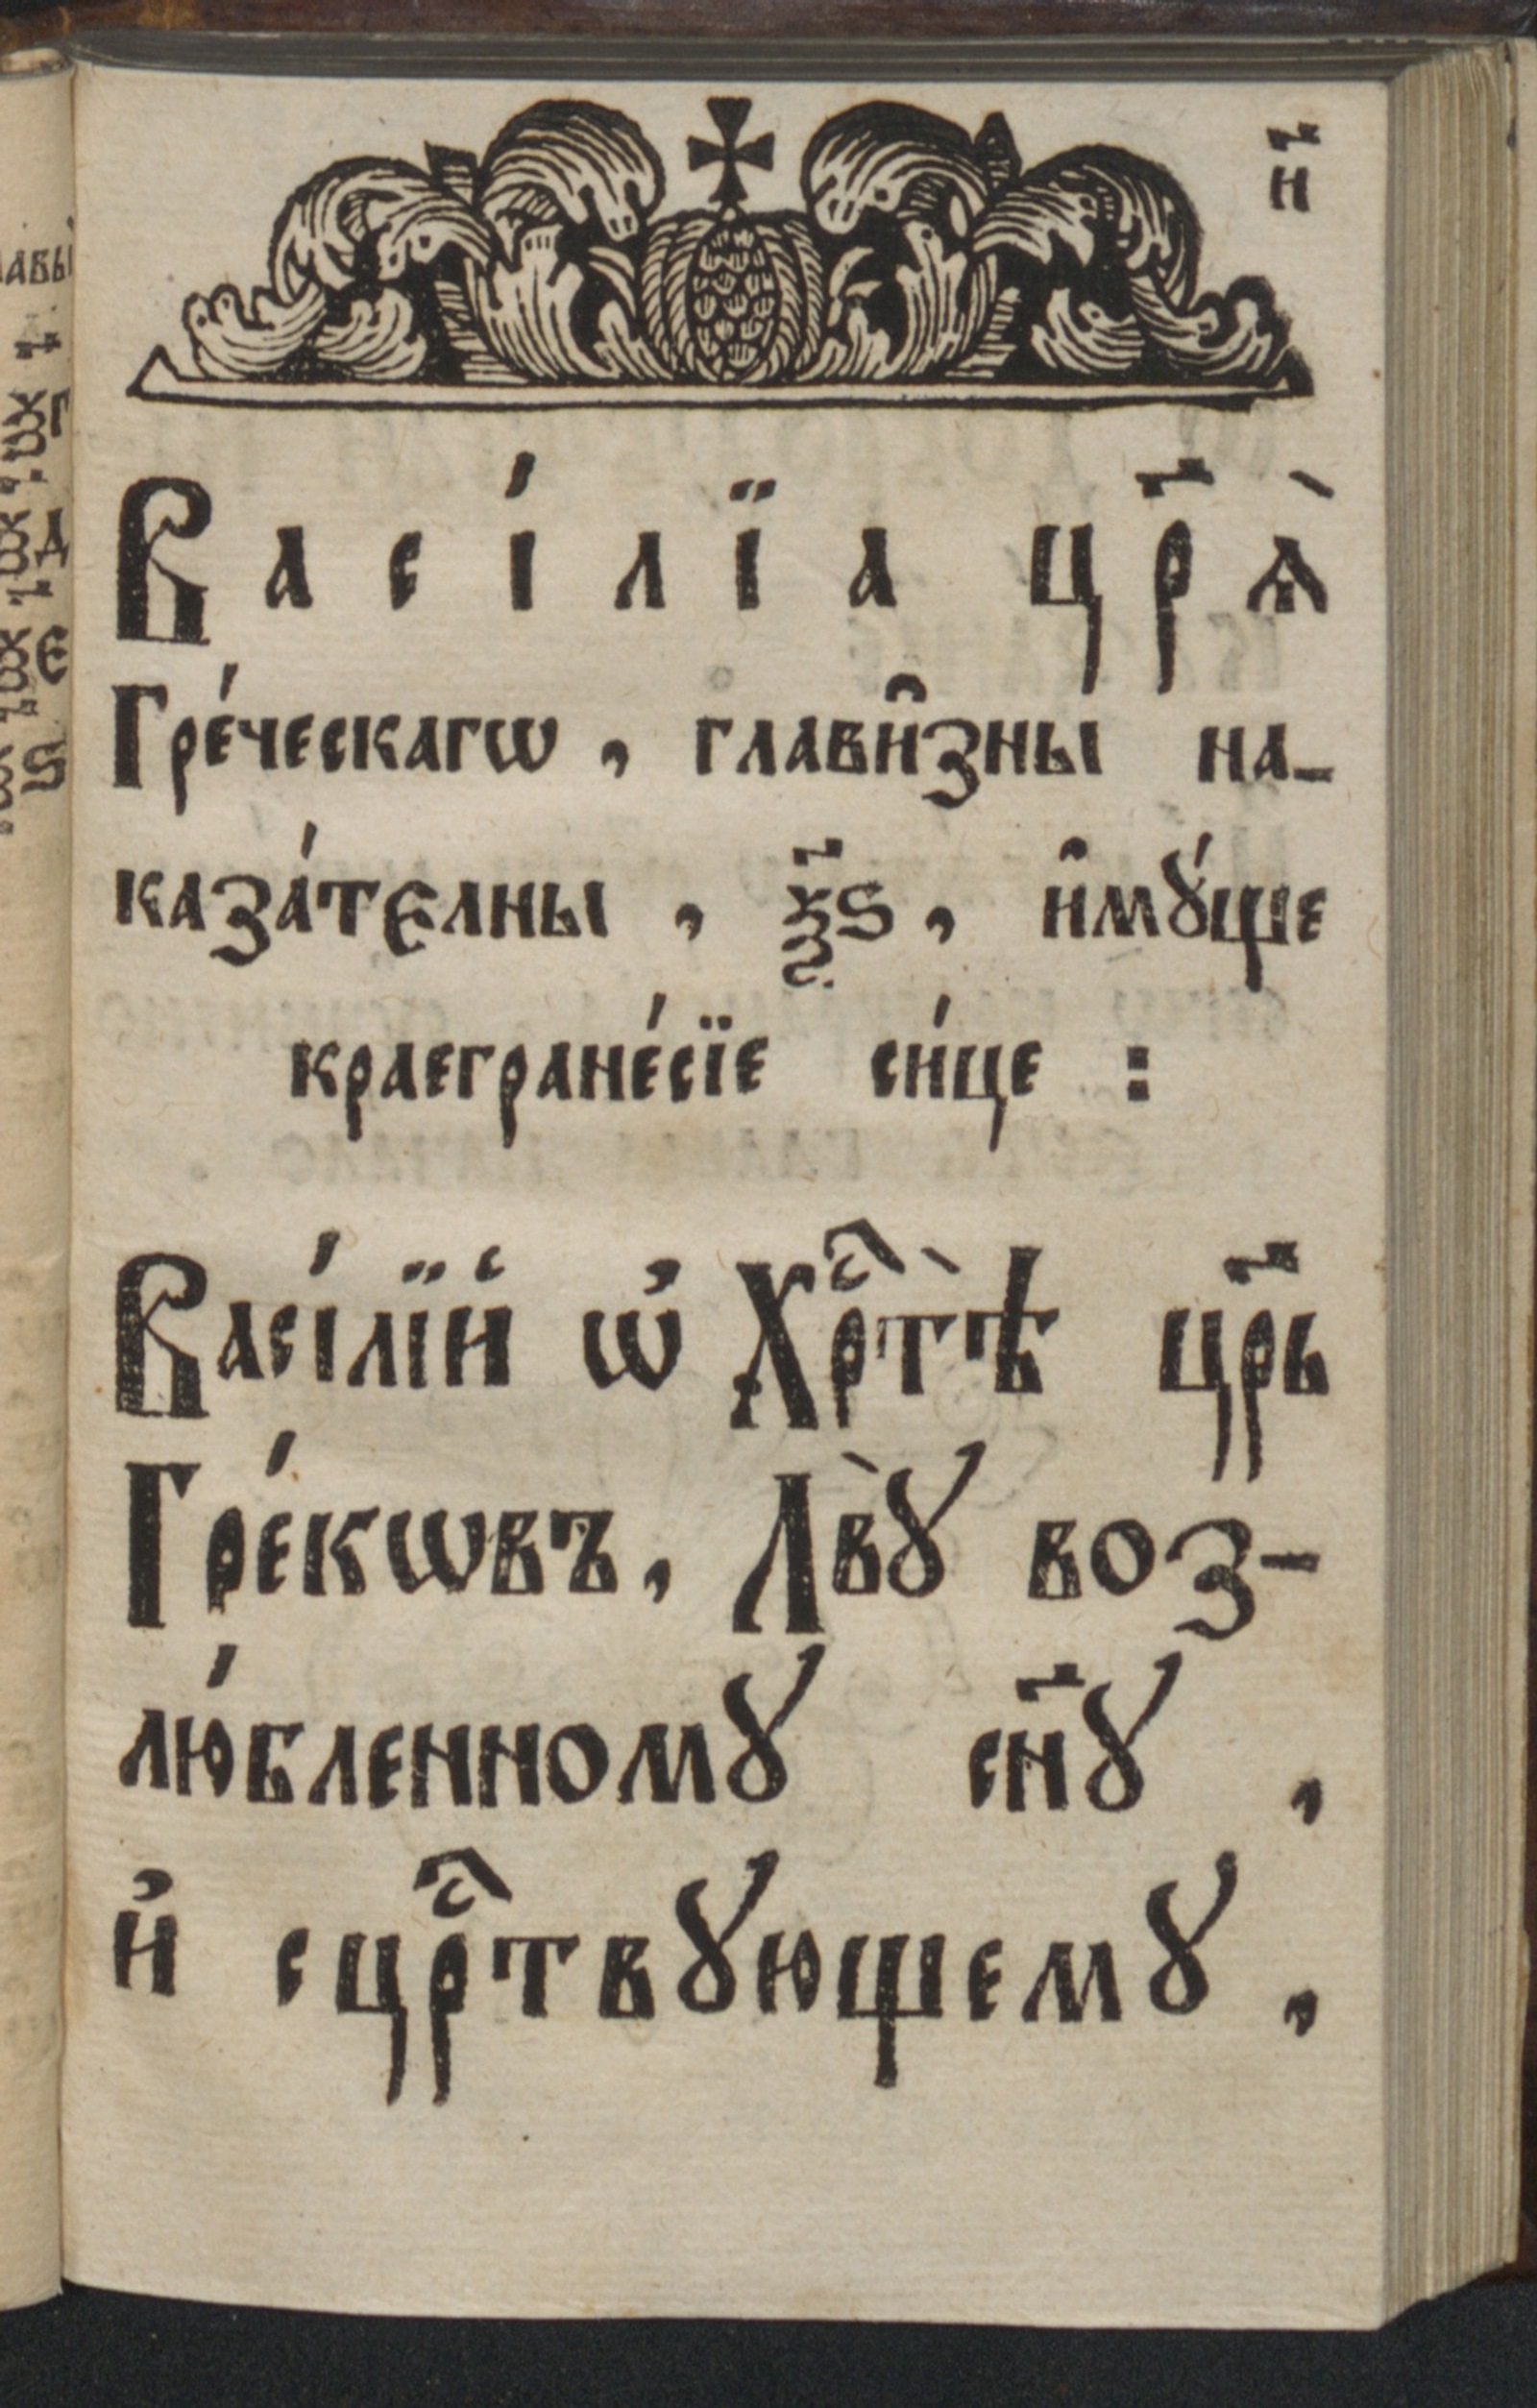 и҃
Васі́лїа цр҃ѧ̀
Гре́ческагѡ, глави̑зны на-
каза́тєлны, ѯ҃ѕ, и̑мꙋ́ще
краегране́сїе си́це :
Васі́лїй ѡ҆ Хрⷭ҇тѣ̀ цр҃ь
Гре́кѡвъ, Лвꙋ̀ воз-
лю́бленномꙋ сн҃ꙋ,
и҆ сцрⷭ҇твꙋющемꙋ,